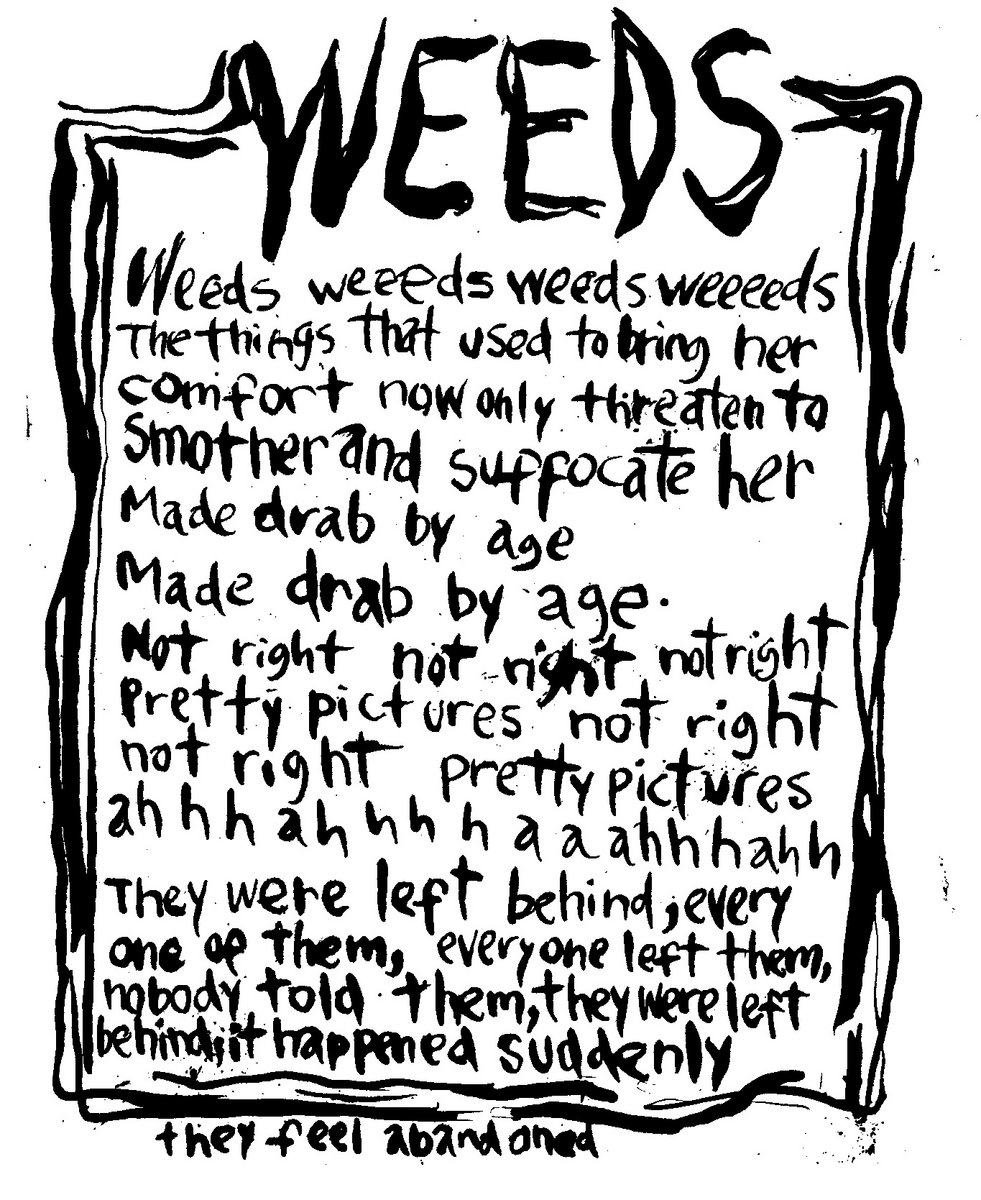 WEEDS
Weeds weeeds weeds weeeeds
The things that used to bring her
comfort now only threaten to
Smother and suffocate her
Made drab by age
Made drab by age.
Not right not right not right
Pretty pictures not right
not right pretty pictures
ahhh ahhhh a a ahhhahh
They were left behind, every
one of them, everyone left them,
nobody told them, they were left
behind, it happened suddenly
they feel abandoned